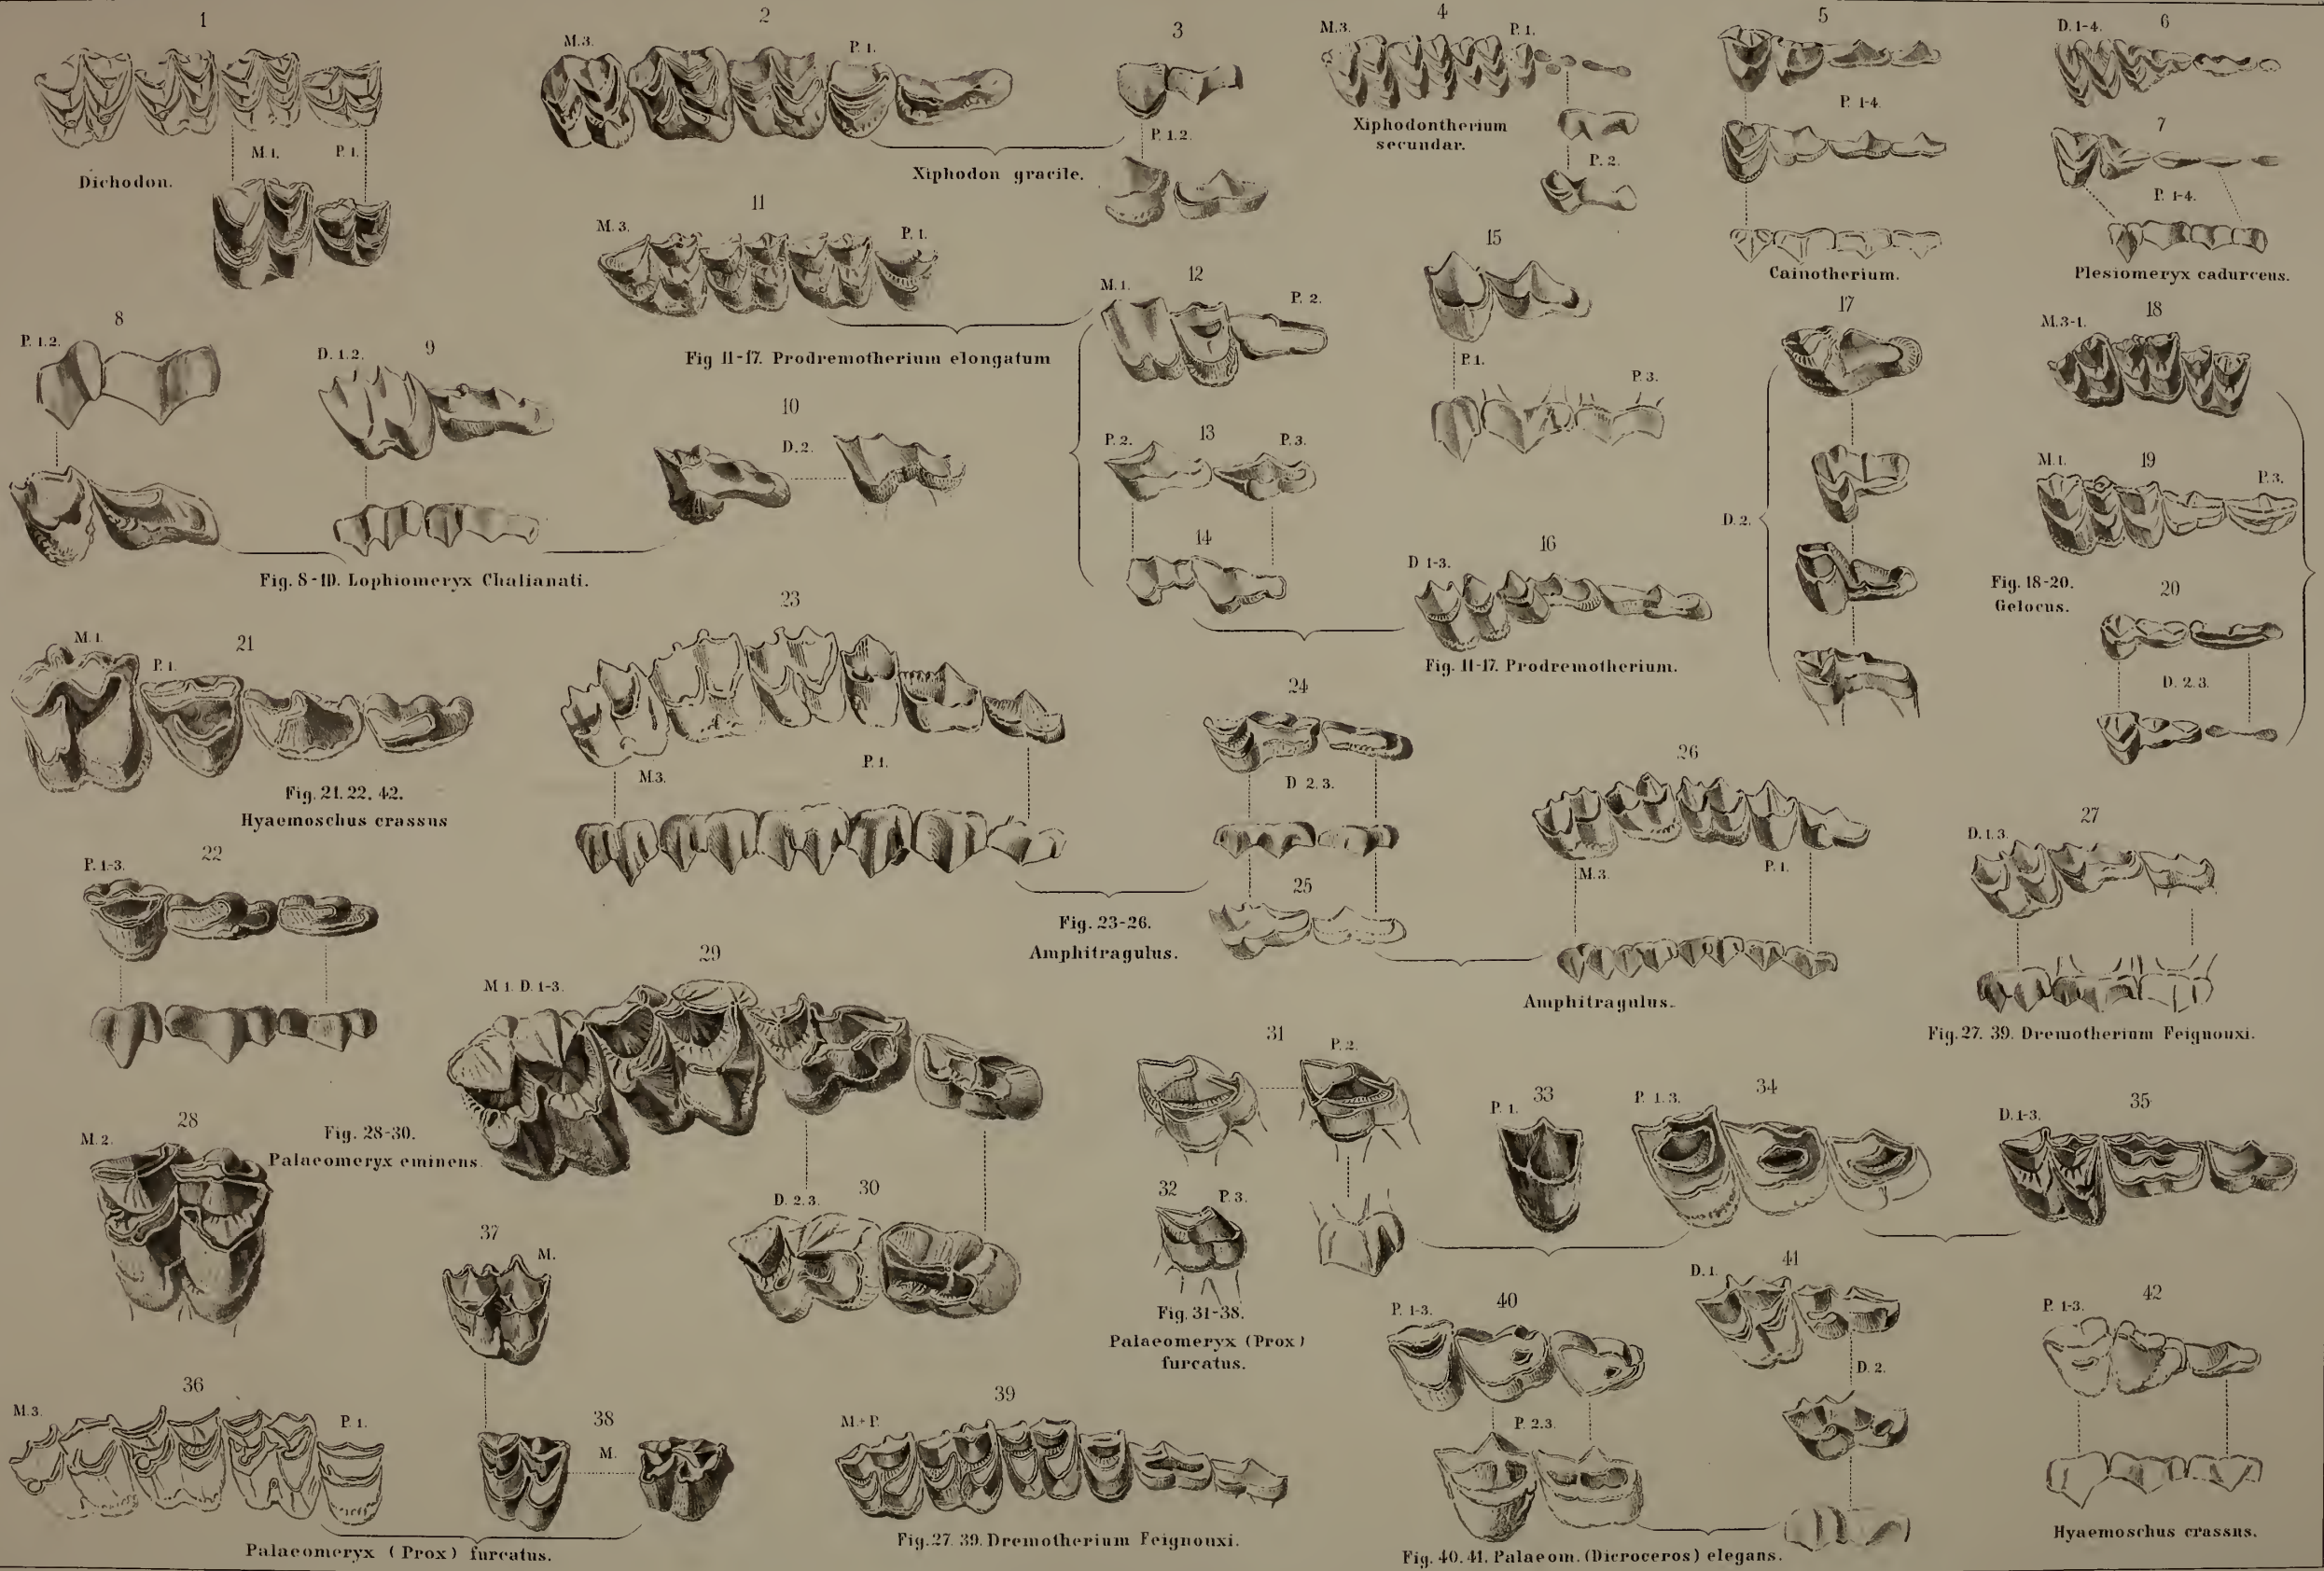 1
M. 1.
P. 1.
Dichodon.
2
M.3.
P. 1.
Xiphodon gracile.
3
P. 1.2.
4
M.3.
P. 1.
Xiphodontherium
secundar.
P. 2.
5
P. 1-4.
Cainotherium.
6
D. 1-4.
7
P. 1-4.
Plesiomeryx cadurceus.
8
P. 1.2.
9
D. 1.2.
10
D.2.
Fig. 8-10. Lophiomeryx Chalianati.
11
M. 3.
P. 1.
Fig 11-17. Prodremotherium elongatum
12
M. 1.
P. 2.
13
P. 2.
P. 3.
14
15
P. 1.
P. 3.
16
D 1-3.
Fig. 11-17. Prodremotherium.
17
D. 2.
18
M.3-1.
19
M. 1.
P. 3.
Fig. 18-20.
Gelocus.
20
D. 2.3.
21
M. 1.
P. 1.
Fig. 21. 22. 42.
Hyaemoschus crassus
22
P. 1-3.
23
M.3.
P. 1.
24
D 2.3.
25
Fig. 23-26.
Amphitragulus.
26
M.3.
P. 1.
Amphitragulus.
27
D. 1.3.
Fig. 27. 39. Dremotherium Feignouxi.
28
M. 2.
Fig. 28-30.
Palaeomeryx eminens.
29
M 1. D. 1-3.
30
D. 2.3.
31
P. 2.
32
P. 3.
Fig. 31-38.
Palaeomeryx (Prox)
furcatus.
33
P. 1.
34
P. 1.3.
35
D. 1-3.
36
M.3.
P. 1.
37
M.
38
M.
Palaeomeryx (Prox) furcatus.
39
M.+ P.
Fig. 27. 39. Dremotherium Feignouxi.
40
P. 1-3.
P. 2.3.
41
D. 1.
D. 2.
Fig. 40. 41. Palaeom. (Dicroceros) elegans.
42
P. 1-3.
Hyaemoschus crassus.